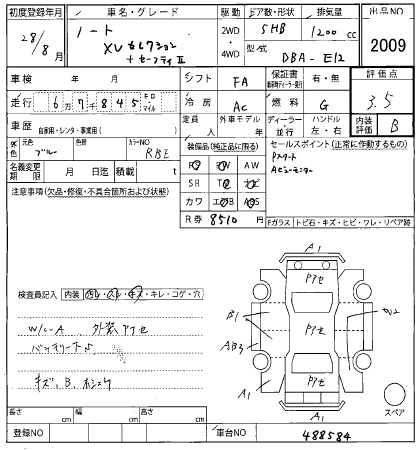 初度登録年月 車名・グレード 駆動 ドア数・形状 排気量 出品NO
28/8月 ノート 2WD 5HB 1200cc 2009
XV セレクション ・4WD 型式 DBA-E12
+セーフティⅡ
車検 年 月 シフト FA 保証書 有・無 評価点
走行 6万7千845キロ・マイル 冷房 AC 燃料 G 3.5
車歴 自家用・レンタ・事業用( ) 定員 人 外車モデル 年 ディーラー・並行 ハンドル 左・右 内装評価 B
外色 元色 ブルー 色替 カラーNO RBE 装備品(純正品に限る) セールスポイント(正常に作動するもの)
名義変更期限 月 日迄 積載 t PS PW AW Pスタート
ACモニター
注意事項(欠品・修復・不具合箇所および状態) SR TV ナビ
カワ エアB ABS
R券 8510円
Fガラス トビ石・キズ・ヒビ・ワレ・リペア跡
A1
Pアセ
検査員記入 内装 ヨゴレ・スレ・キズ・キレ・コゲ・穴
B1 Pアセ W2
W/C-A 外装アセ
AB3
バッテリー
Pアセ
キズ、B、ホシュウ A1
スペア
A1
長さ cm 幅 cm 高さ cm
登録NO 車台NO 488584